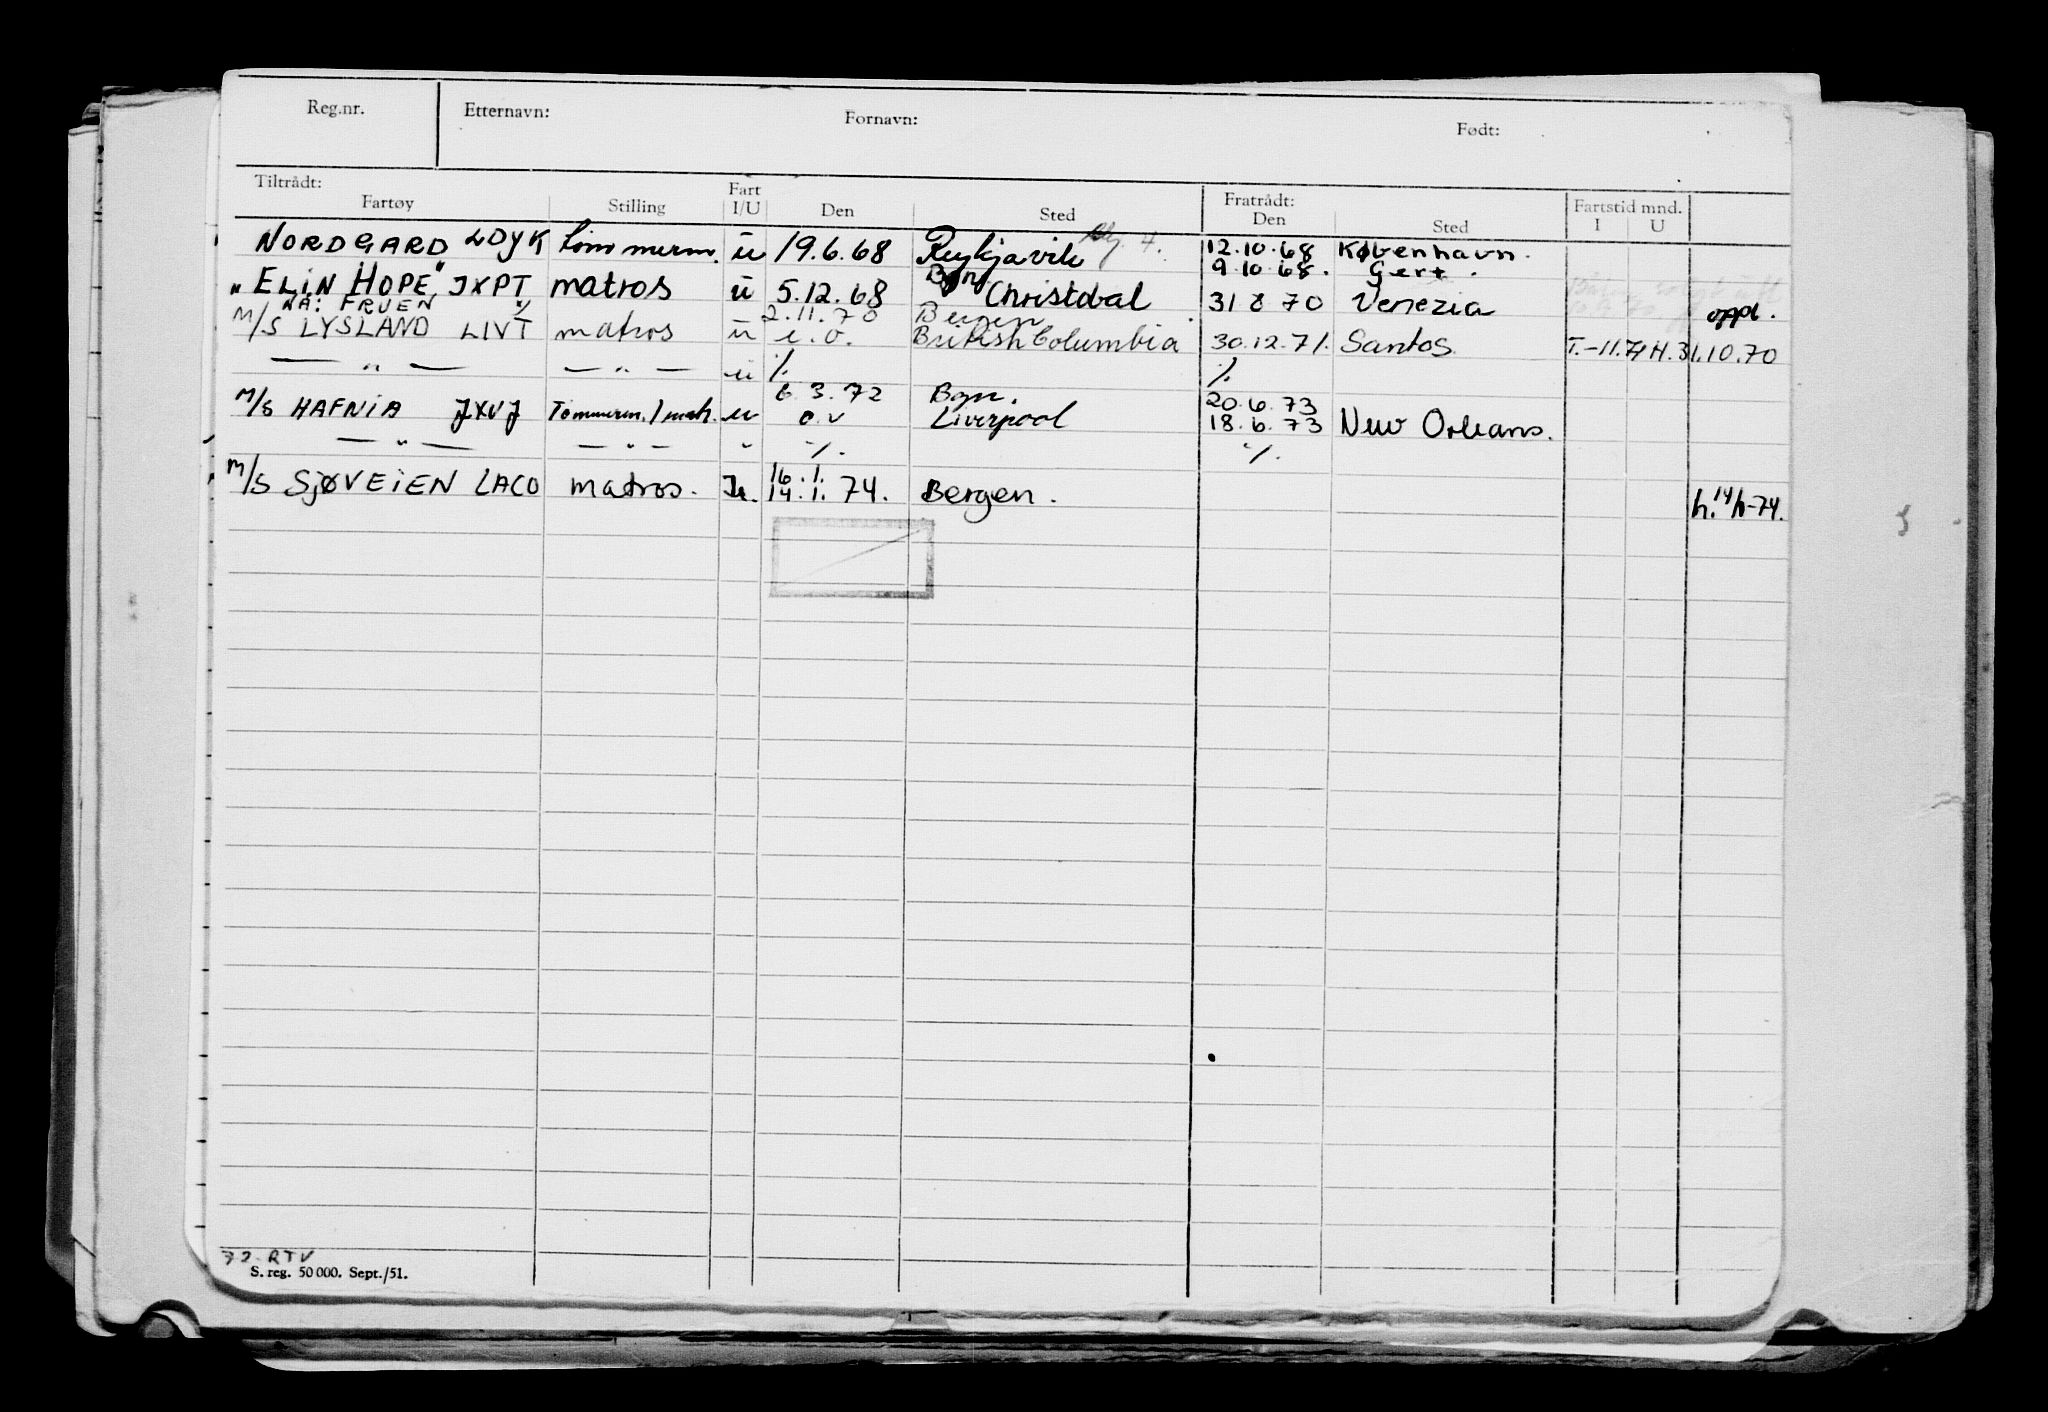 Reg.nr. Etternavn: Fornavn: Født:
Tiltrådt: Fart Fratrådt: Fartstid mnd.
Fartøy Stilling I/U Den Sted Den Sted I U
NORDGARD LDYK tømmerm. u 19.6.68 Reykjavik 12.10.68 København.
9.10.68. Gert.
"ELIN HOPE" JXPT matros u 5.12.68 Bgn Christobal 31 8 70 Venezia oppl.
NÅ: FRUEN 2.11.70 Bergen
M/S LYSLAND LIVT matros u i.o. British Columbia 30.12.71. Santos T.-11.71 H.31.10.70
— " — — " — u %. %.
6.3.72 Bgn. 20.6.73
M/S HAFNIA JXVJ Tømmerm./matr. u o.v Liverpool 18.6.73 New Orleans.
— " — — " — " %. %.
16.1.
M/S SJØVEIEN LACO matros. u. 14.1.74. Bergen.
72 RTV
S. reg. 50 000. Sept./51.